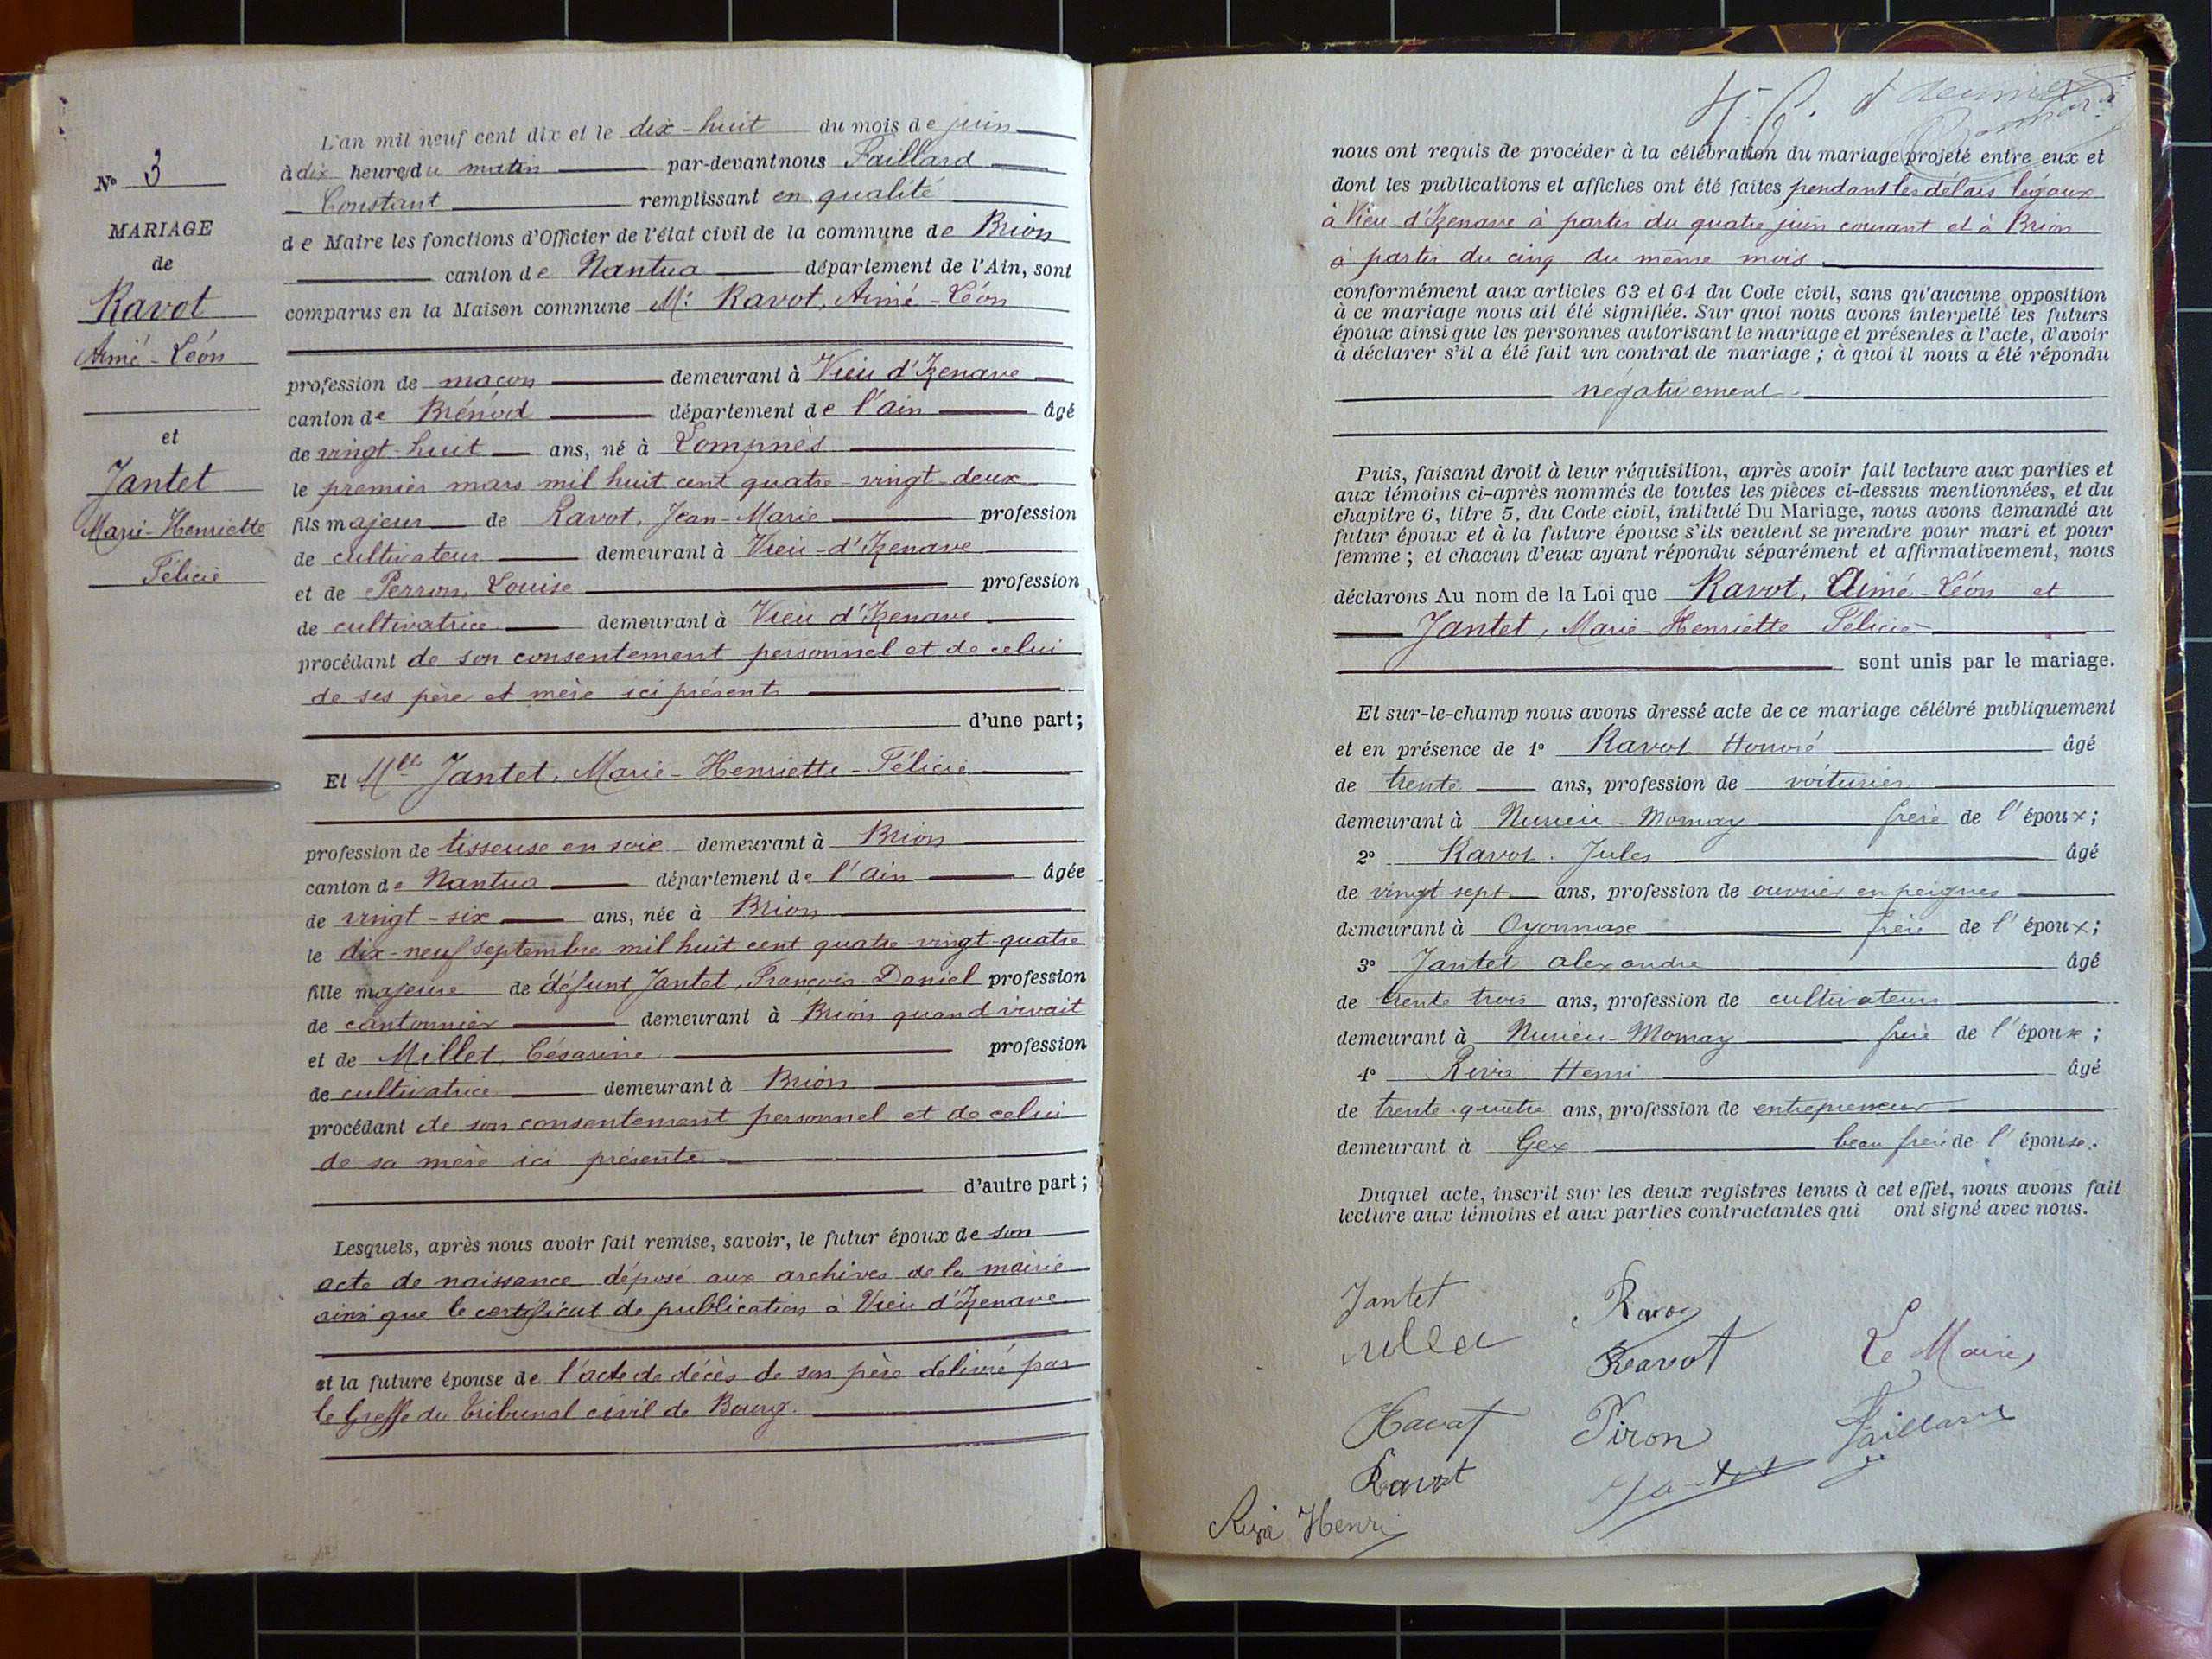 N° 3
MARIAGE
de
Ravot
Aimé-Léon
et
Jantet
Marie-Henriette
Félicie
L'an mil neuf cent dix et le dix-huit du mois de juin
à dix heures du matin par-devant nous Faillard
Constant remplissant en qualité
de Maire les fonctions d'Officier de l'état civil de la commune de Brion
canton de Nantua département de l'Ain, sont
comparus en la Maison commune Mr Ravot, Aimé-Léon
profession de maçon demeurant à Vieu d'Izenave
canton de Brénod département de l'ain âgé
de vingt-huit ans, né à Lompnès
le premier mars mil huit cent quatre-vingt-deux
fils majeur de Ravot, Jean-Marie profession
de cultivateur demeurant à Vieu-d'Izenave
et de Perron, Louise profession
de cultivatrice demeurant à Vieu d'Izenave
procédant de son consentement personnel et de celui
de ses père et mère ici présents
d'une part;
Et Mlle Jantet, Marie-Henriette-Félicie
profession de tisseuse en soie demeurant à Brion
canton de Nantua département de l'ain âgée
de vingt-six ans, née à Brion
le dix-neuf septembre mil huit cent quatre-vingt-quatre
fille majeure de défunt Jantet, François-Daniel profession
de cantonnier demeurant à Brion quand vivait
et de Millet, Césarine profession
de cultivatrice demeurant à Brion
procédant de son consentement personnel et de celui
de sa mère ici présente
d'autre part;
Lesquels, après nous avoir fait remise, savoir, le futur époux de son
acte de naissance déposé aux archives de la mairie
ainsi que le certificat de publication à Vieu d'Izenave
et la future épouse de l'acte de décès de son père délivré par
le Greffe du tribunal civil de Bourg.
nous ont requis de procéder à la célébration du mariage projeté entre eux et
dont les publications et affiches ont été faites pendant les délais légaux
à Vieu d'Izenave à partir du quatre juin courant et à Brion
à partir du cinq du même mois.
conformément aux articles 63 et 64 du Code civil, sans qu'aucune opposition
à ce mariage nous ait été signifiée. Sur quoi nous avons interpellé les futurs
époux ainsi que les personnes autorisant le mariage et présentes à l'acte, d'avoir
à déclarer s'il a été fait un contrat de mariage; à quoi il nous a été répondu
négativement.
Puis, faisant droit à leur réquisition, après avoir fait lecture aux parties et
aux témoins ci-après nommés de toutes les pièces ci-dessus mentionnées, et du
chapitre 6, titre 5, du Code civil, intitulé Du Mariage, nous avons demandé au
futur époux et à la future épouse s'ils veulent se prendre pour mari et pour
femme; et chacun d'eux ayant répondu séparément et affirmativement, nous
déclarons Au nom de la Loi que Ravot, Aimé-Léon et
Jantet, Marie-Henriette-Félicie
sont unis par le mariage.
Et sur-le-champ nous avons dressé acte de ce mariage célébré publiquement
et en présence de 1° Ravot Honoré âgé
de trente ans, profession de voiturier
demeurant à Nurieu-Mornay frère de l'époux;
2° Ravot. Jules âgé
de vingt sept ans, profession de ouvrier en peignes
demeurant à Oyonnax frère de l'époux;
3° Jantet alexandre âgé
de trente trois ans, profession de cultivateur
demeurant à Nurieu-Mornay frère de l'épouse;
4° Henri âgé
de trente-quatre ans, profession de entrepreneur
demeurant à Gex beau frère de l'épouse.
Duquel acte, inscrit sur les deux registres tenus à cet effet, nous avons fait
lecture aux témoins et aux parties contractantes qui ont signé avec nous.
Jantet
Ravot
Ravot
Le Maire,
Ravot
Piron
Faillard
Ravot
Jantet
Henri